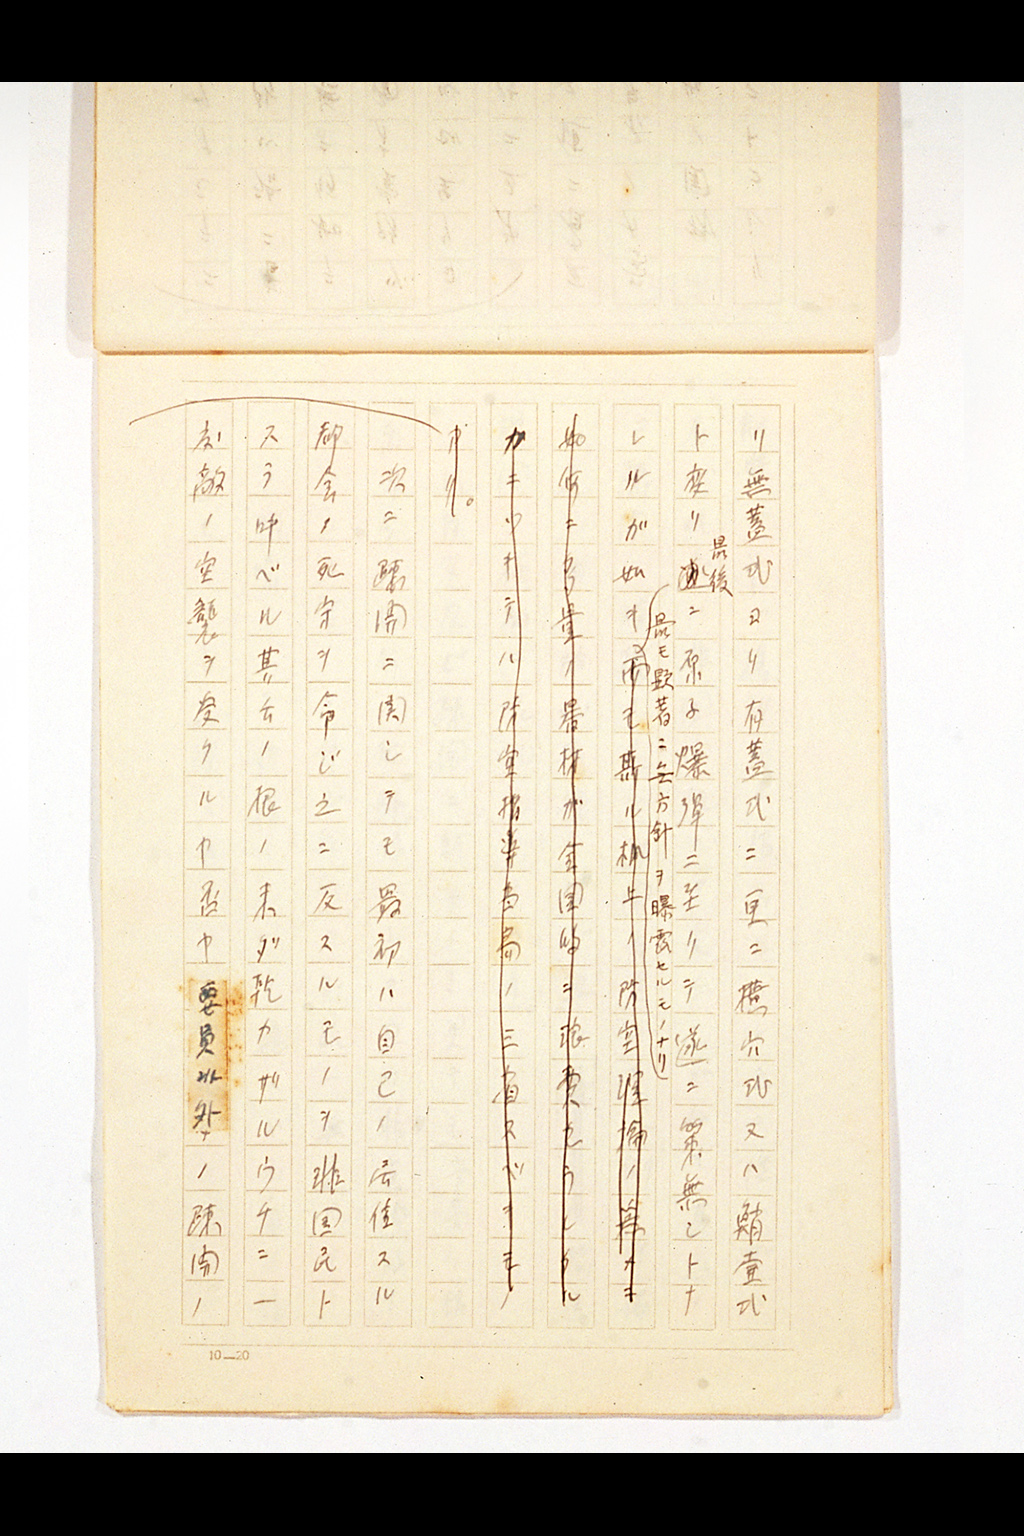 リ無蓋式ヨリ有蓋式ニ更ニ横穴式又ハ鮹壷式
ト変リ
最後
ニ原子爆弾ニ至リテ遂ニ策無シトナ
レルガ如キ
最モ顕著ニ無方針ヲ曝露セルモノナリ
而モ斯ル机上ノ防空理論ノ為ナキ
如何ニ多量ノ器材ガ全国的ニ浪費セラレタル
カニツキテハ防空指導当局ノ三省スベキモノ
ナリ。
次ニ疎開ニ関シテモ最初ハ自己ノ居住スル
都会ノ死守ヲ命ジ之ニ反スルモノヲ非国民ト
スラ呼ベル其舌ノ根ノ未ダ乾カザルウチニ一
度敵ノ空襲ヲ受クルヤ否ヤ要員以外ノ疎開ノ
10—20